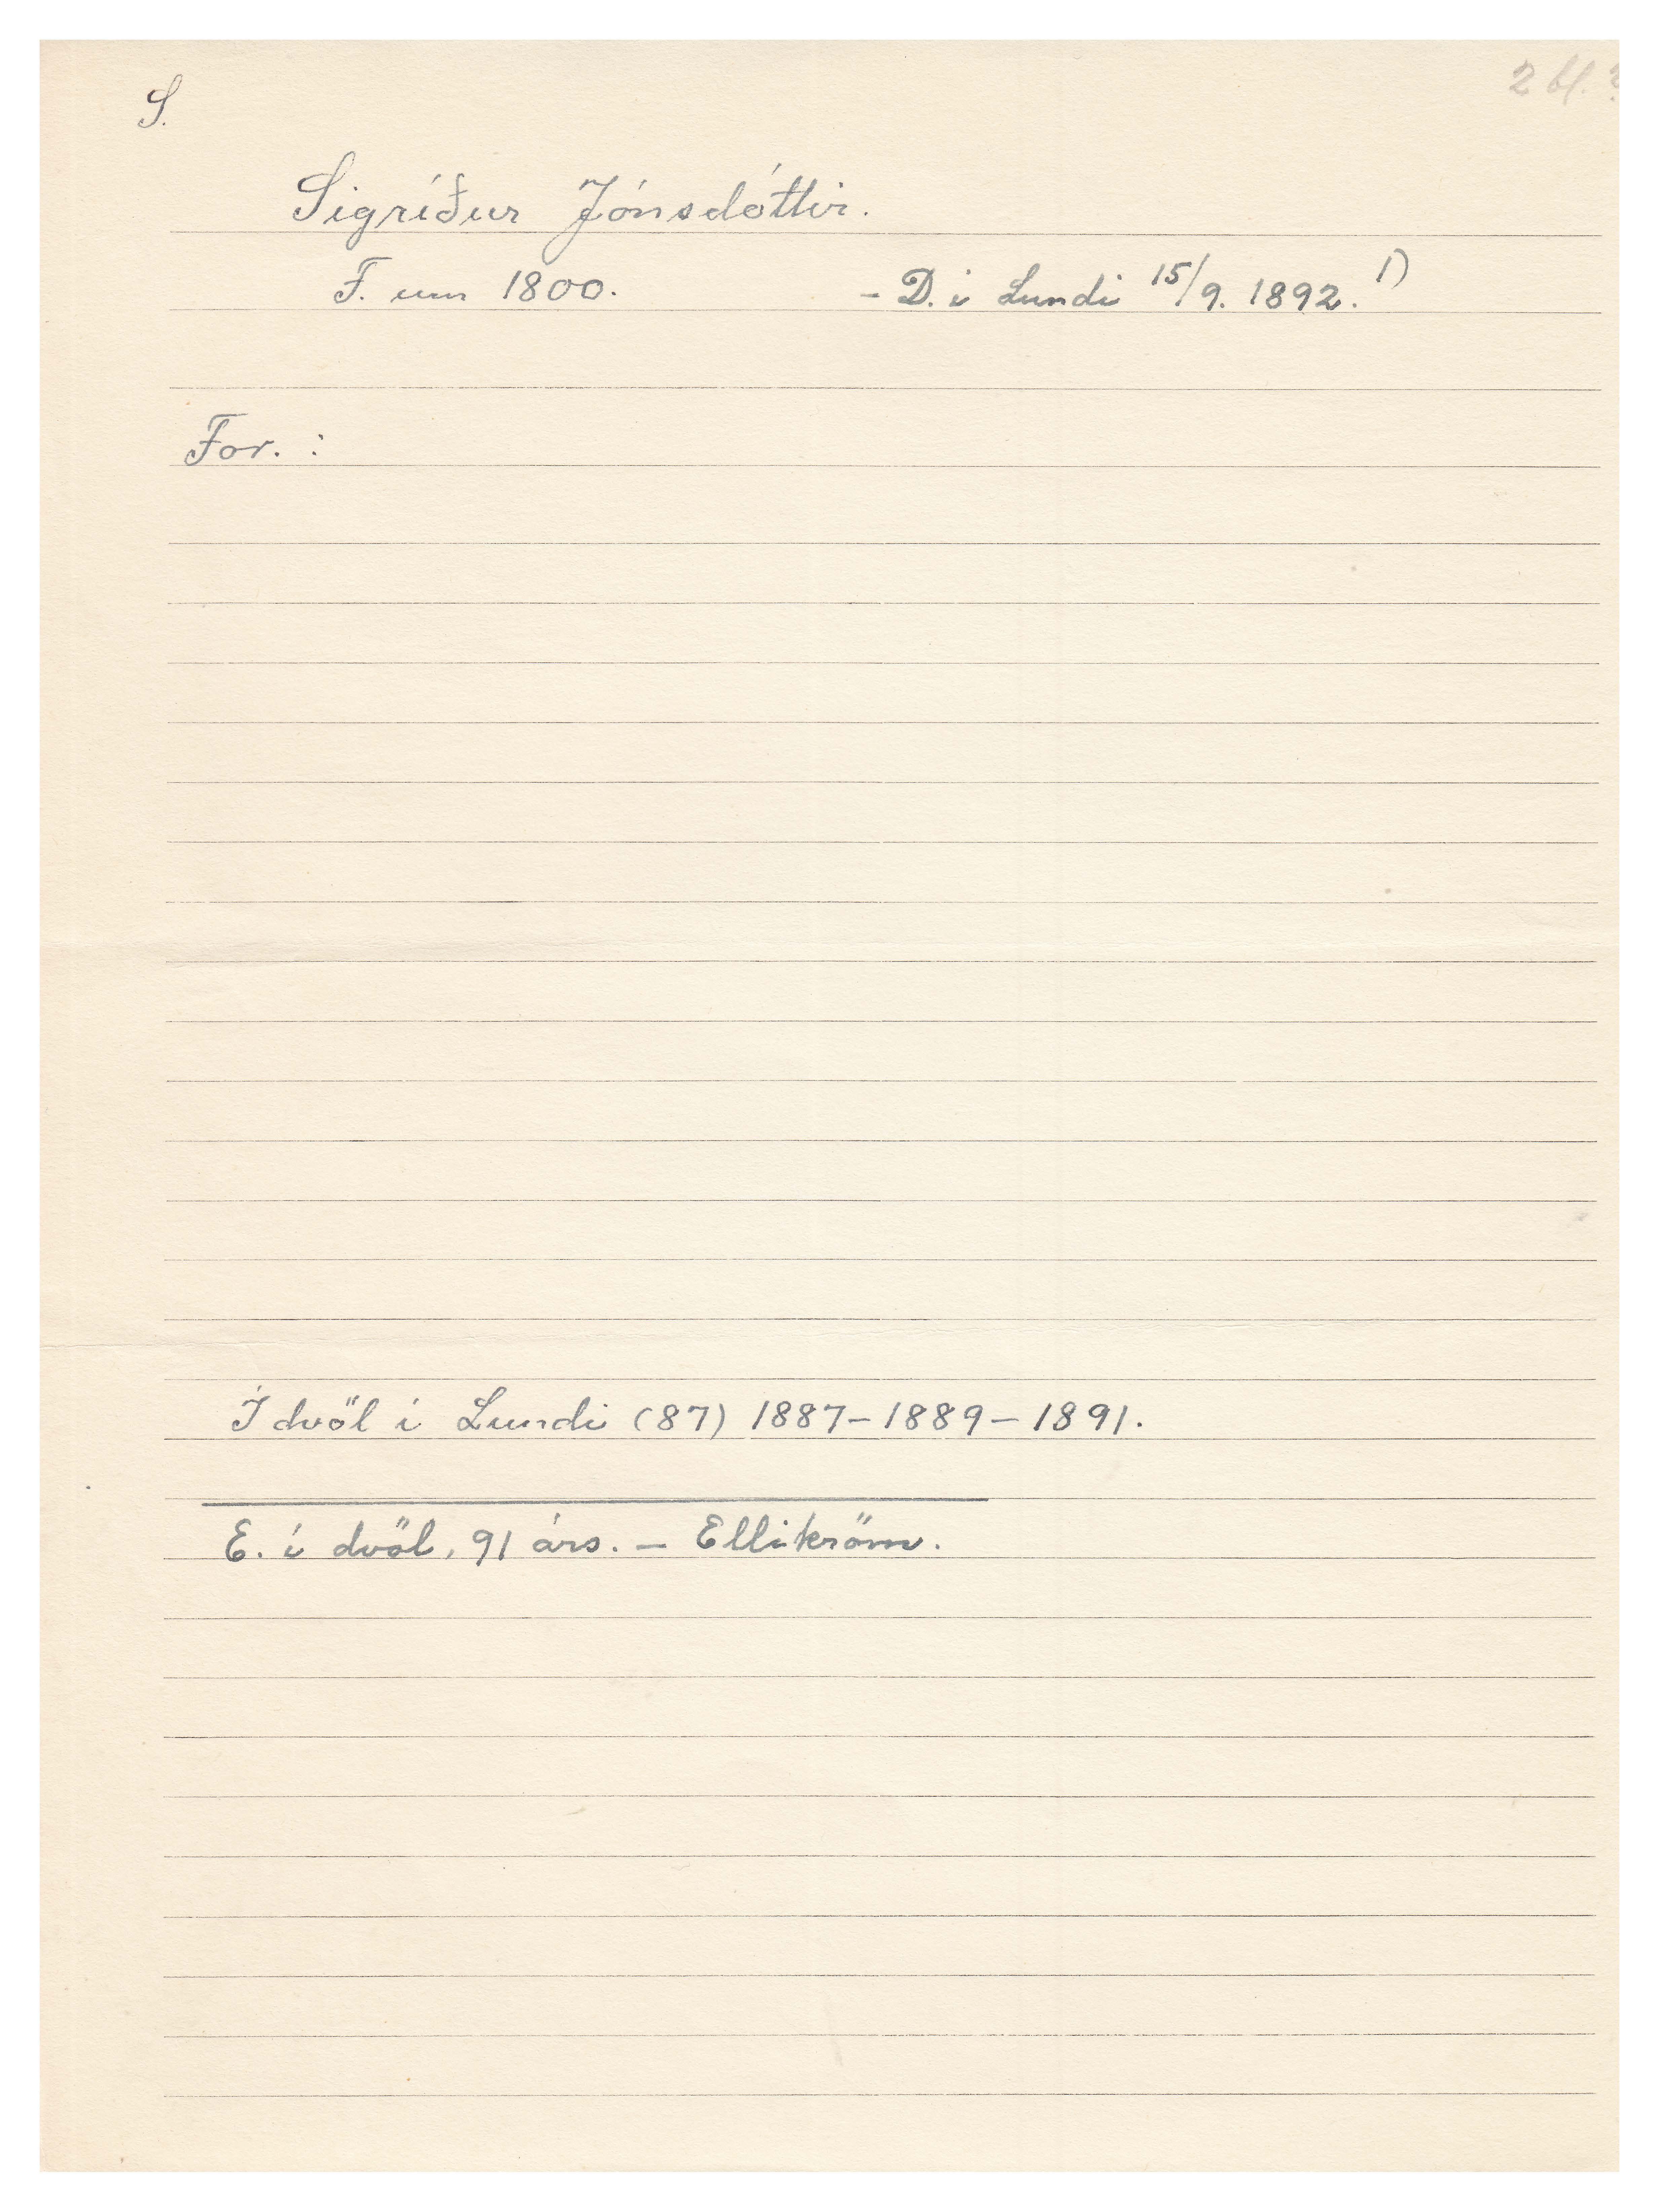 S.
2 bl. ?
Sigríður Jónsdóttir.
F. um 1800. - D. í Lundi 15/9. 1892. 1)
For. :
Í dvöl í Lundi (87) 1887-1889-1891.
E. í dvöl, 91 árs. - Ellikröm.